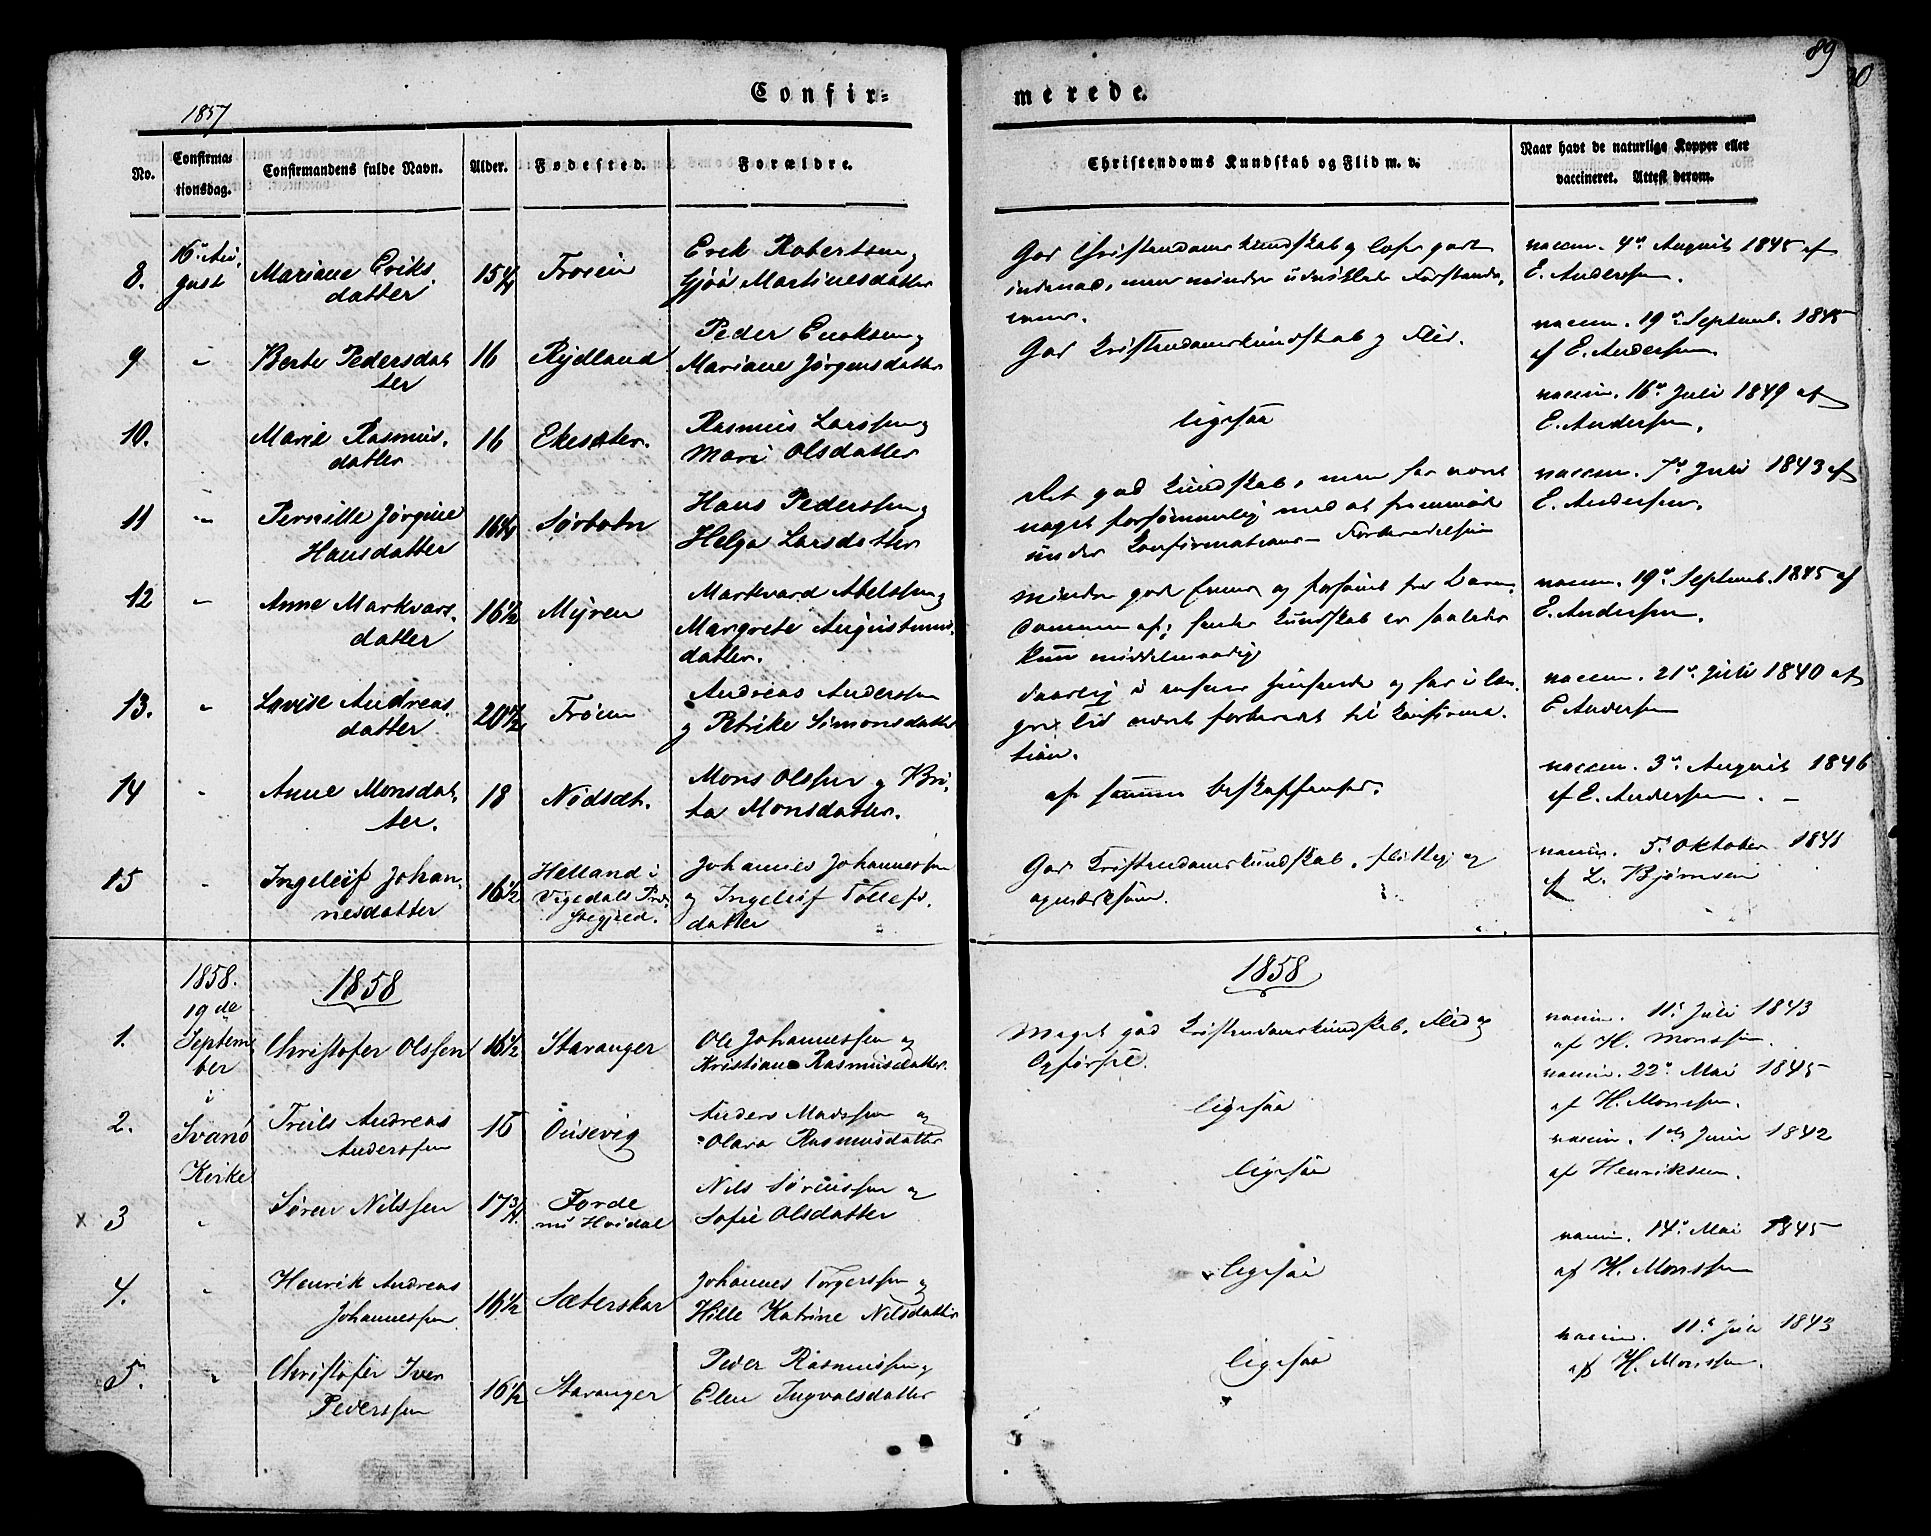 89
Confir-
merede.
1857
No.
Confirma-
tionsdag.
Confirmandens fulde Navn.
Alder.
Fødested.
Forældre.
Christendoms Kundskab og Flid m. v.
Naar havt de naturlige Kopper eller
vaccineret. Attest derom.
8.
16de Au-
gust
Mariane Eriks
datter
15¼
Troien
Erek Robertsen og
Gjöa Martinesdatter
God Christendomskundskab og
men mindre udviklede Forstands-
evner.
vaccin. 4de August 1845 af
E. Anderssen.
9
"
Berte Pedersdat
ter
16
Rydland
Peder Enoksen og
Mariane Jørgensdatter
God Kristendomskundskab og Flid.
vaccin. 19de Septemb. 1845
af E. Anderssen.
10.
Marie Rasmus-
datter
16
Ekesæter.
Rasmus Larssen og
Mari Olsdatter
ligesaa
vaccin. 16de Juli 1849 af
E. Anderssen.
11
"
Pernille Jørgine
Hansdatter
16¼
Sørbotn
Hans Pederssen og
Helga Larsdatter
god Kundskab, men har været
noget forsømmelig med at fremmøde
under Konfirmations-Forberedelsen
vaccin. 7de Juli 1843 af
E. Anderssen.
12
"
Anne Markvars-
datter
16½
Myren
Markvard Abelssen og
Margrete Augustinus-
datter.
mindre gode Evner og forsömt fra Barn-
dommen af; hendes Kundskab er saaledes
kun middelmaadig
vaccin. 19de Septemb. 1845 af
E. Anderssen.
13.
"
Lovise Andreas
datter
20½
Trøien
Andreas Anderssen
og Petrike Simonsdatter
daarlig i enhver Henseende og har i læn-
gre Tid været forberedet til Konfirma-
tion.
vaccin. 21de Juli 1840 af
E Anderssen
14
"
Anne Monsdat-
ter.
18
Nødsæt.
Mons Olssen og Bri-
ta Monsdatter.
af samme beskaffenhed.
vaccin. 3de August 1846
af E. Anderssen. -
15
"
Ingeleif Johan-
nesdatter
16½
Helland i
Vigedals Præ-
stegjeld.
Johannes Johannessen
og Ingeleif Tollefs-
datter
God Kristendomskundskab, flittig og
opmærksom.
vaccin. 5. Oktober 1841
af L. Bjørnsen
1858.
1858
1858
1.
19de
Septem
ber
i
Svanö
Kirke
Christofer Olssen
16½
Stavanger
Ole Johannessen og
Kristiane Rasmusdatter.
Meget god Kristendomskundskab, Flid og
Opførsel.
vaccin. 11te Juli 1843
af H. Monssen.
2.
Truls Andreas
Anderssen
15
Ousevig
Anders Madssen og
Olava Rasmusdatter
ligesaa
vaccin. 22de Mai 1845
af H. Monssen.
x 3
"
Søren Nilssen
17¾
Förde
nu Hovdal
Nils Sörenssen og
Sofie Olsdatter
ligesaa
vaccin. 1ste Juni 1842
af Henriksen.
4.
"
Henrik Andreas
Johannessen
16½
Sæterskar
Johannes Torgerssen og
Hille Katrine Nilsdatter
ligesaa
vaccin. 14de Mai 1845
af H. Monssen
5.
"
Christofer Iver
Pederssen
16½
Stavanger
Peder Rasmussen og
Elen Ingvalsdatter
ligesaa
vaccin. 11te Juli 1843
af H. Monssen.